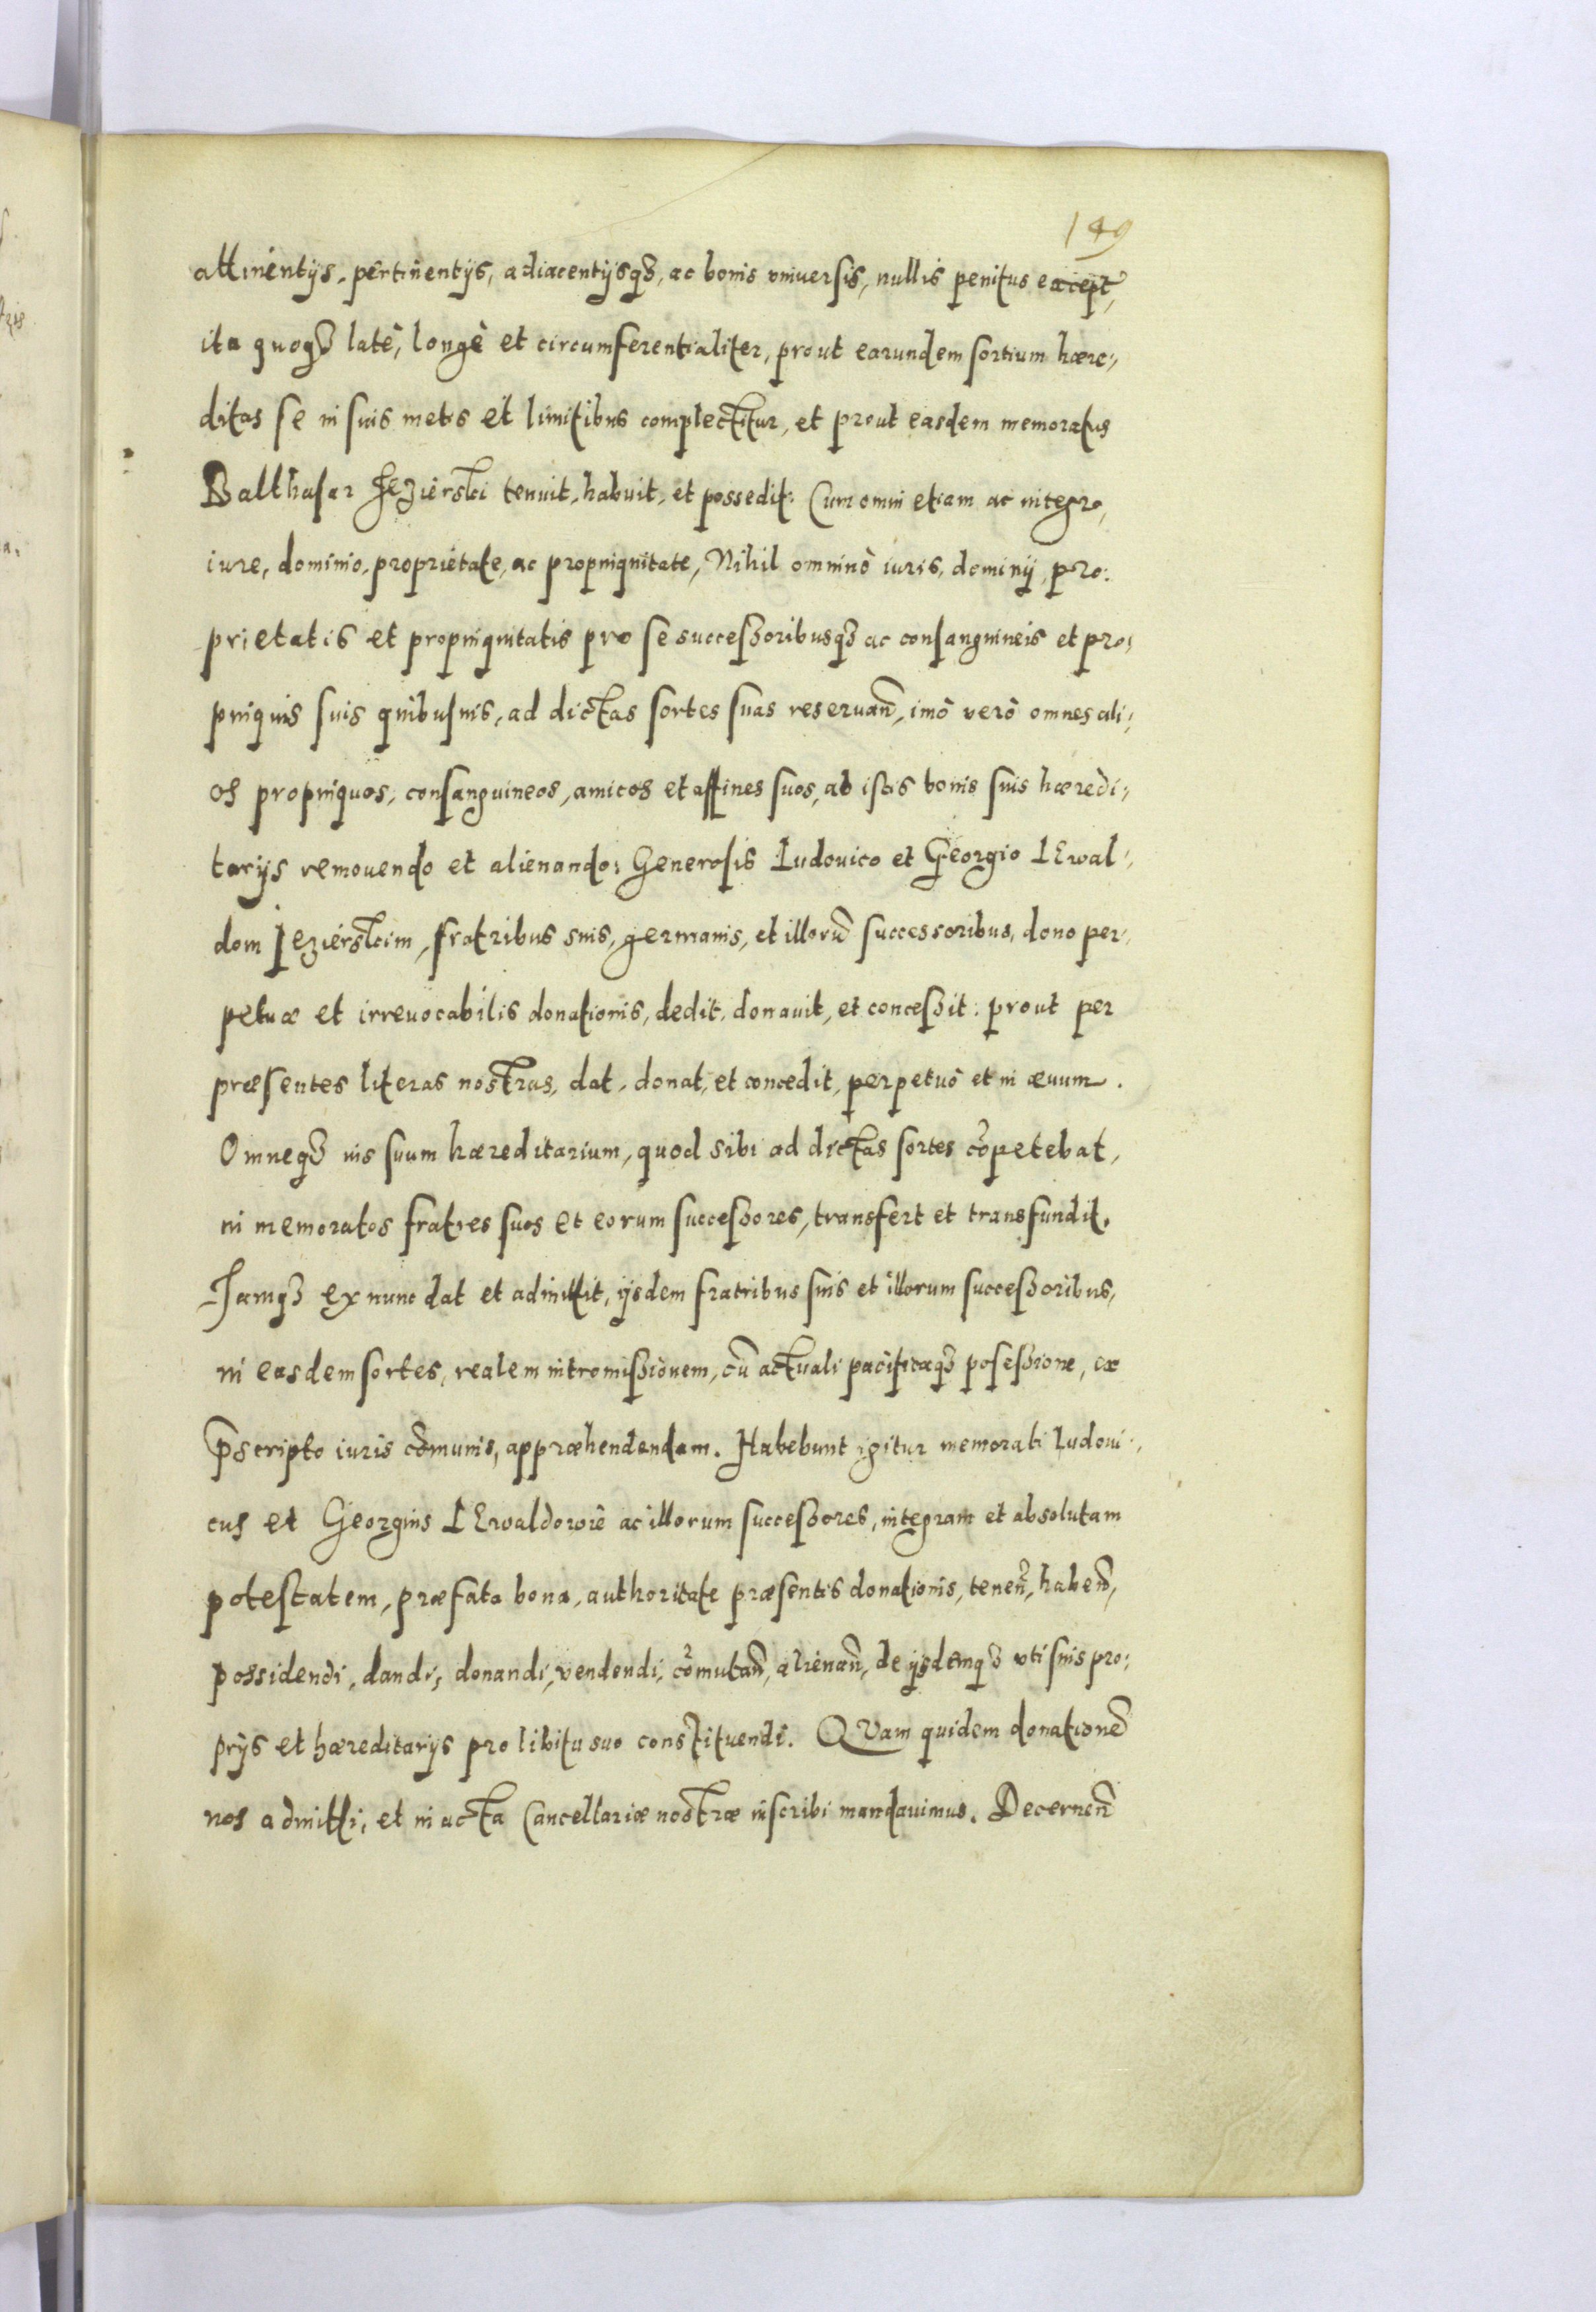 149
attinentijs, pertinentijs, adiacentijsqȝ, ac bonis vniuersis, nullis penitus except̃,
ita quoqȝ latè, longè et circumferentialiter, prout earundem sortium hære-
ditas se in suis metis et limitibus complectitur, et prout easdem memoratus
Balthasar Jezierski tenuit, habuit, et possedit: Cum omni etiam ac integro,
iure, dominio, proprietate, ac propinquitate, Nihil omninò iuris, dominij, pro-
prietatis et propinquitatis pro se successoribusqȝ ac consanguineis et pro-
pinquis suis quibusuis, ad dictas sortes suas reseruan̄, imò verò omnes ali-
os propinquos, consanguineos, amicos et affines suos, ab istis bonis suis hæredi-
tarijs remouendo et alienando: Generosis Ludouico et Georgio LEwal-
dom Jezierskim, fratribus suis, germanis, et illorū successoribus, dono per-
petuæ et irreuocabilis donationis, dedit, donauit, et concessit: prout per
præsentes literas nostras, dat, donat, et concedit, perpetuò et in æuum.
Omneqȝ ius suum hæreditarium, quod sibi ad dictas sortes cōpetebat,
in memoratos fratres suos et eorum successores, transfert et transfundit.
Jamqȝ ex nunc dat et admittit, ijsdem fratribus suis et illorum successoribus,
in easdem sortes, realem intromissionem, cū actuali pacificaqȝ posessione, ex
p̄scripto iuris cōmunis, appræhendendam. Habebunt igitur memorati Ludoui-
cus et Georgius LEwaldowie ac illorum successores, integram et absolutam
potestatem, præfata bona, authoritate præsentis donationis, tenen̄, haben̄,
possidendi, dandi, donandi, vendendi, cōmutan̄, alienan̄, de ijsdemqȝ vti suis pro-
prijs et hæreditarijs pro libitu suo constituendi. QVam quidem donationē
nos admitti, et in acta Cancellariæ nostræ inscribi mandauimus. Decernen̄